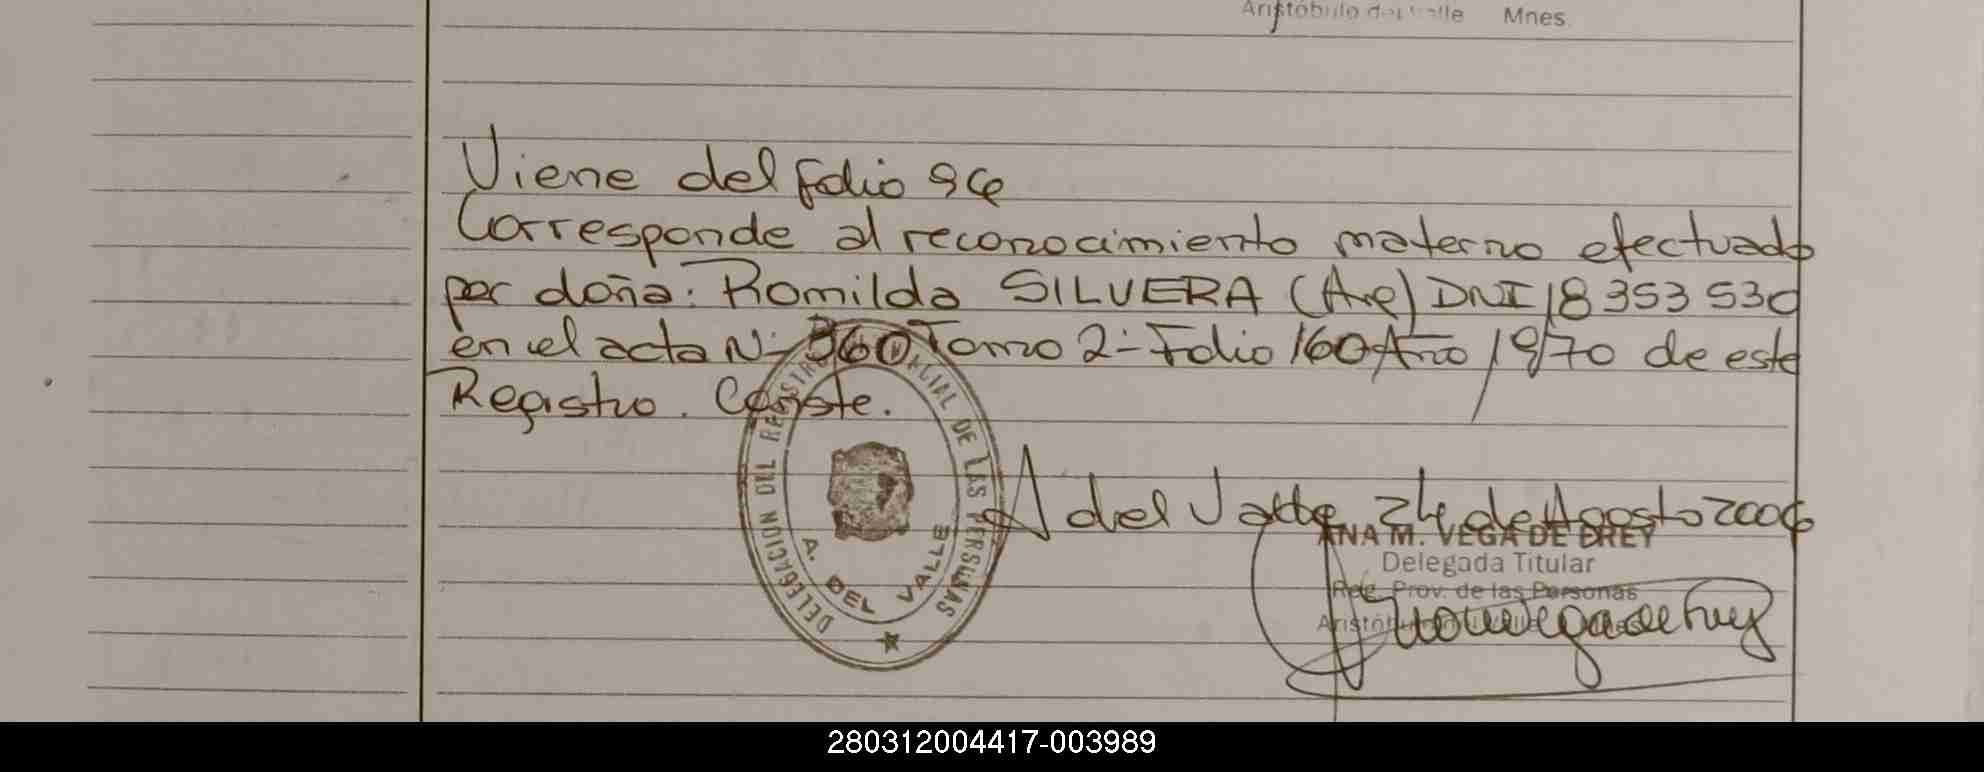 Aristóbulo del Valle Mnes.
Viene del folio 96
Corresponde al reconocimiento materno efectuado
por doña: Romilda SILVERA (Arg) DNI 18 353 530
en el acta Nº 360 Tomo 2º Folio 160 Año 1970 de este
Registro. Conste.
A del Valle, 24 de Agosto 2006
ANA M. VEGA DE
Delegada Titular
Reg. Prov. de las Personas
DELEGACION DEL REGISTRO PROVINCIAL DE LAS PERSONAS
A. DEL VALLE
280312004417-003989